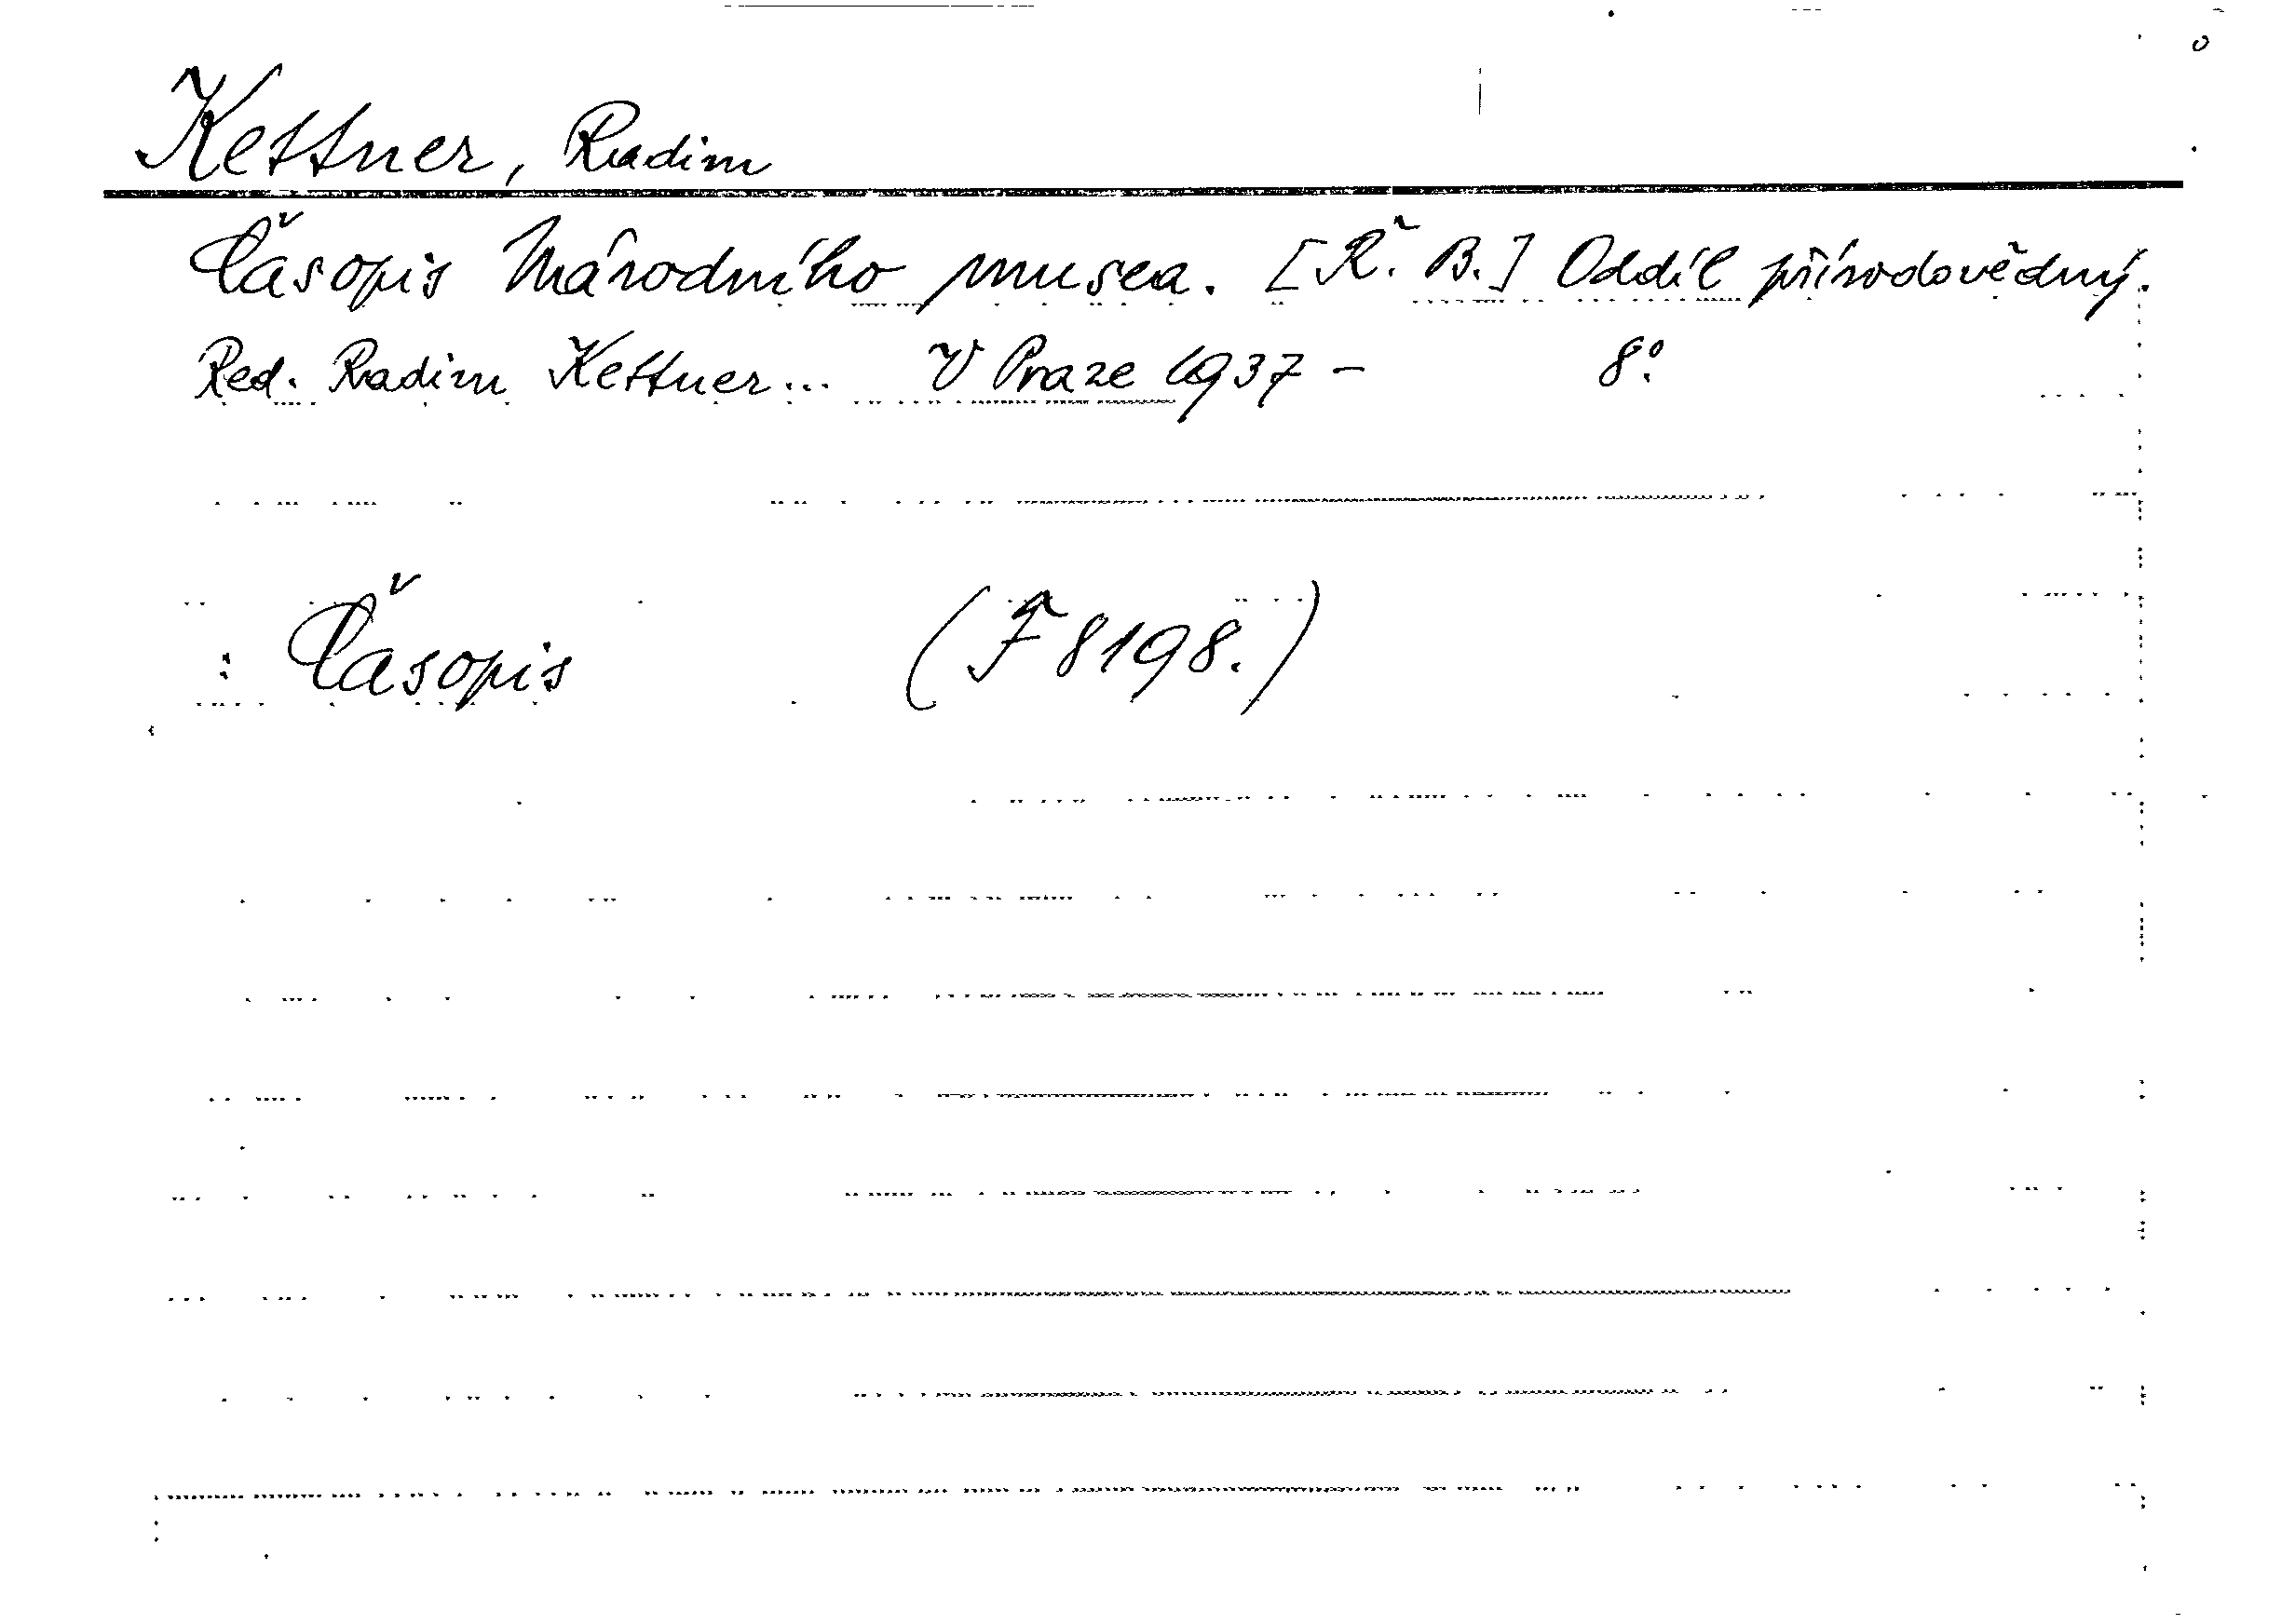 Kettner, Radim
Časopis Národního musea. [Ř. B.] Oddíl přírodovědný.
Red. Radim Kettner... V Praze 1937 - 8°.
: Časopis (F 8198.)